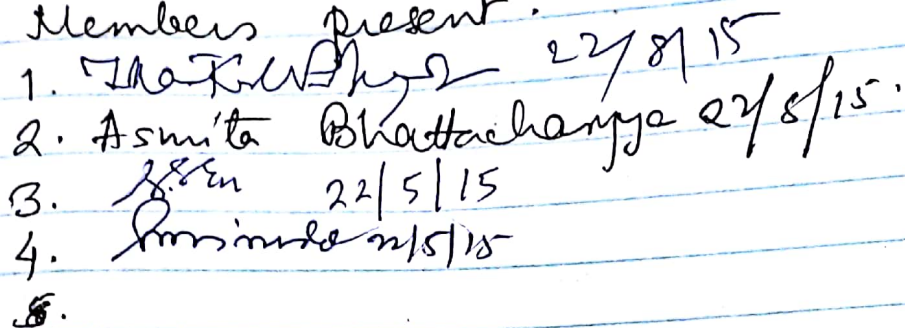 Members present.
1. 22/8/15
2. Asmita Bhattacharyya 22/8/15.
3. S. Sen 22/5/15
4. 22/5/15
5.